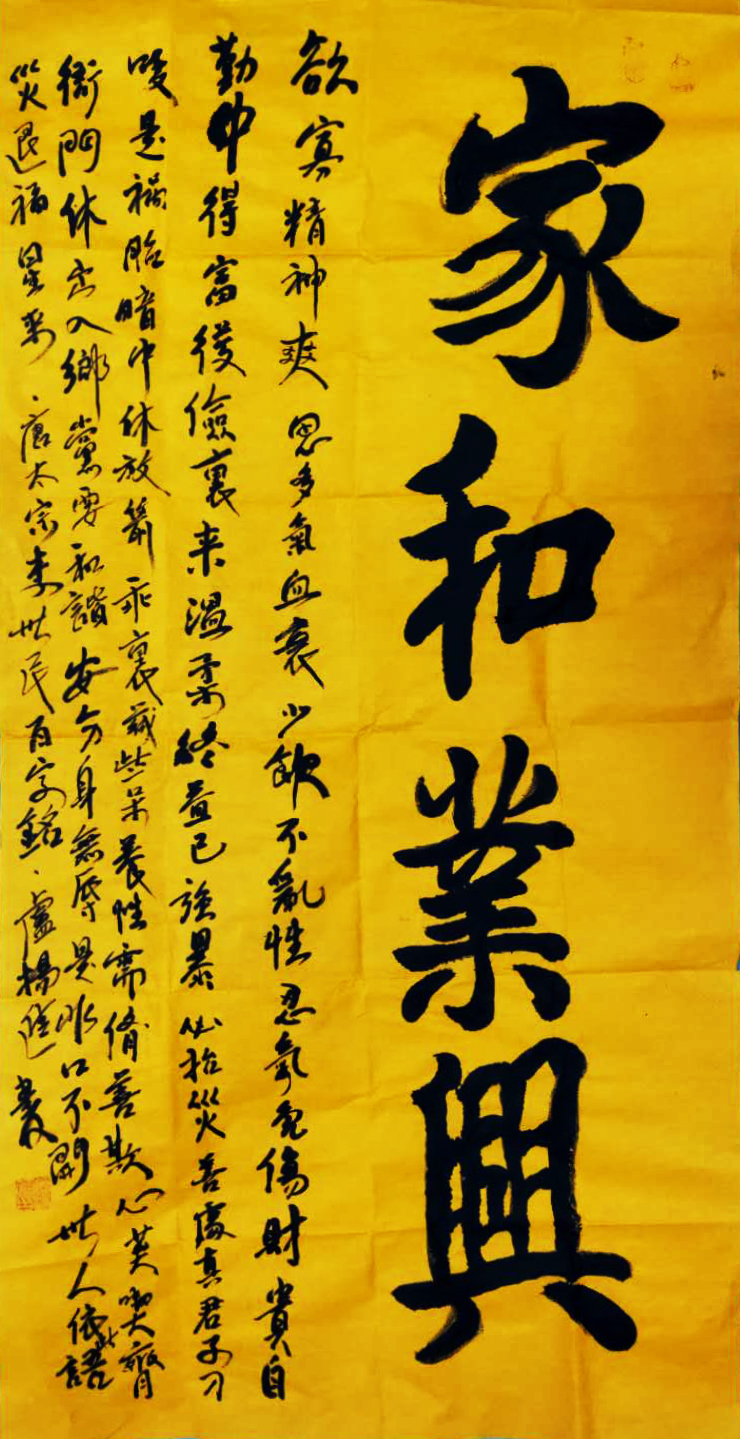 家和業興
欲寡精神爽思多氣血衰少飲不亂性忍氣免傷財貴自
勤中得富從儉裏来溫柔終益己強暴必招災善處真君子刁
唆是禍胎暗中休放箭乖裏藏些呆養性需脩善欺心莫喫齋
衙門休出入鄉黨要和諧安分身無辱是非口不開世人依此語
災退福星來、唐太宗李世民百字銘、盧楊進書